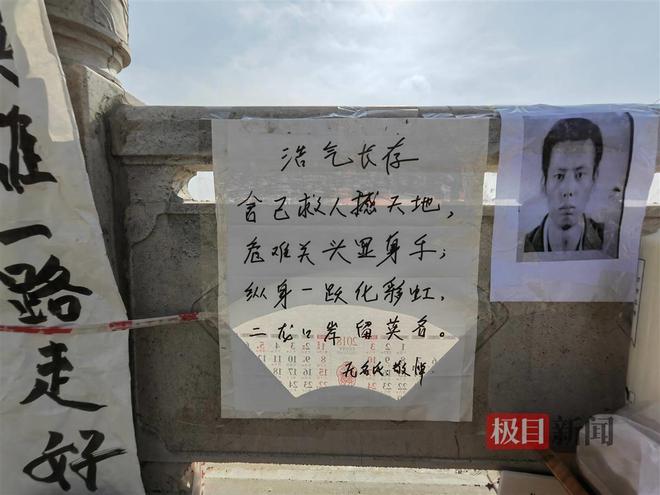 英雄一路走好
浩气长存
舍己救人撼天地，
危难关头显身手；
纵身一跃化彩虹，
二龙口岸留英名。
无名氏 敬悼
2018
极目新闻